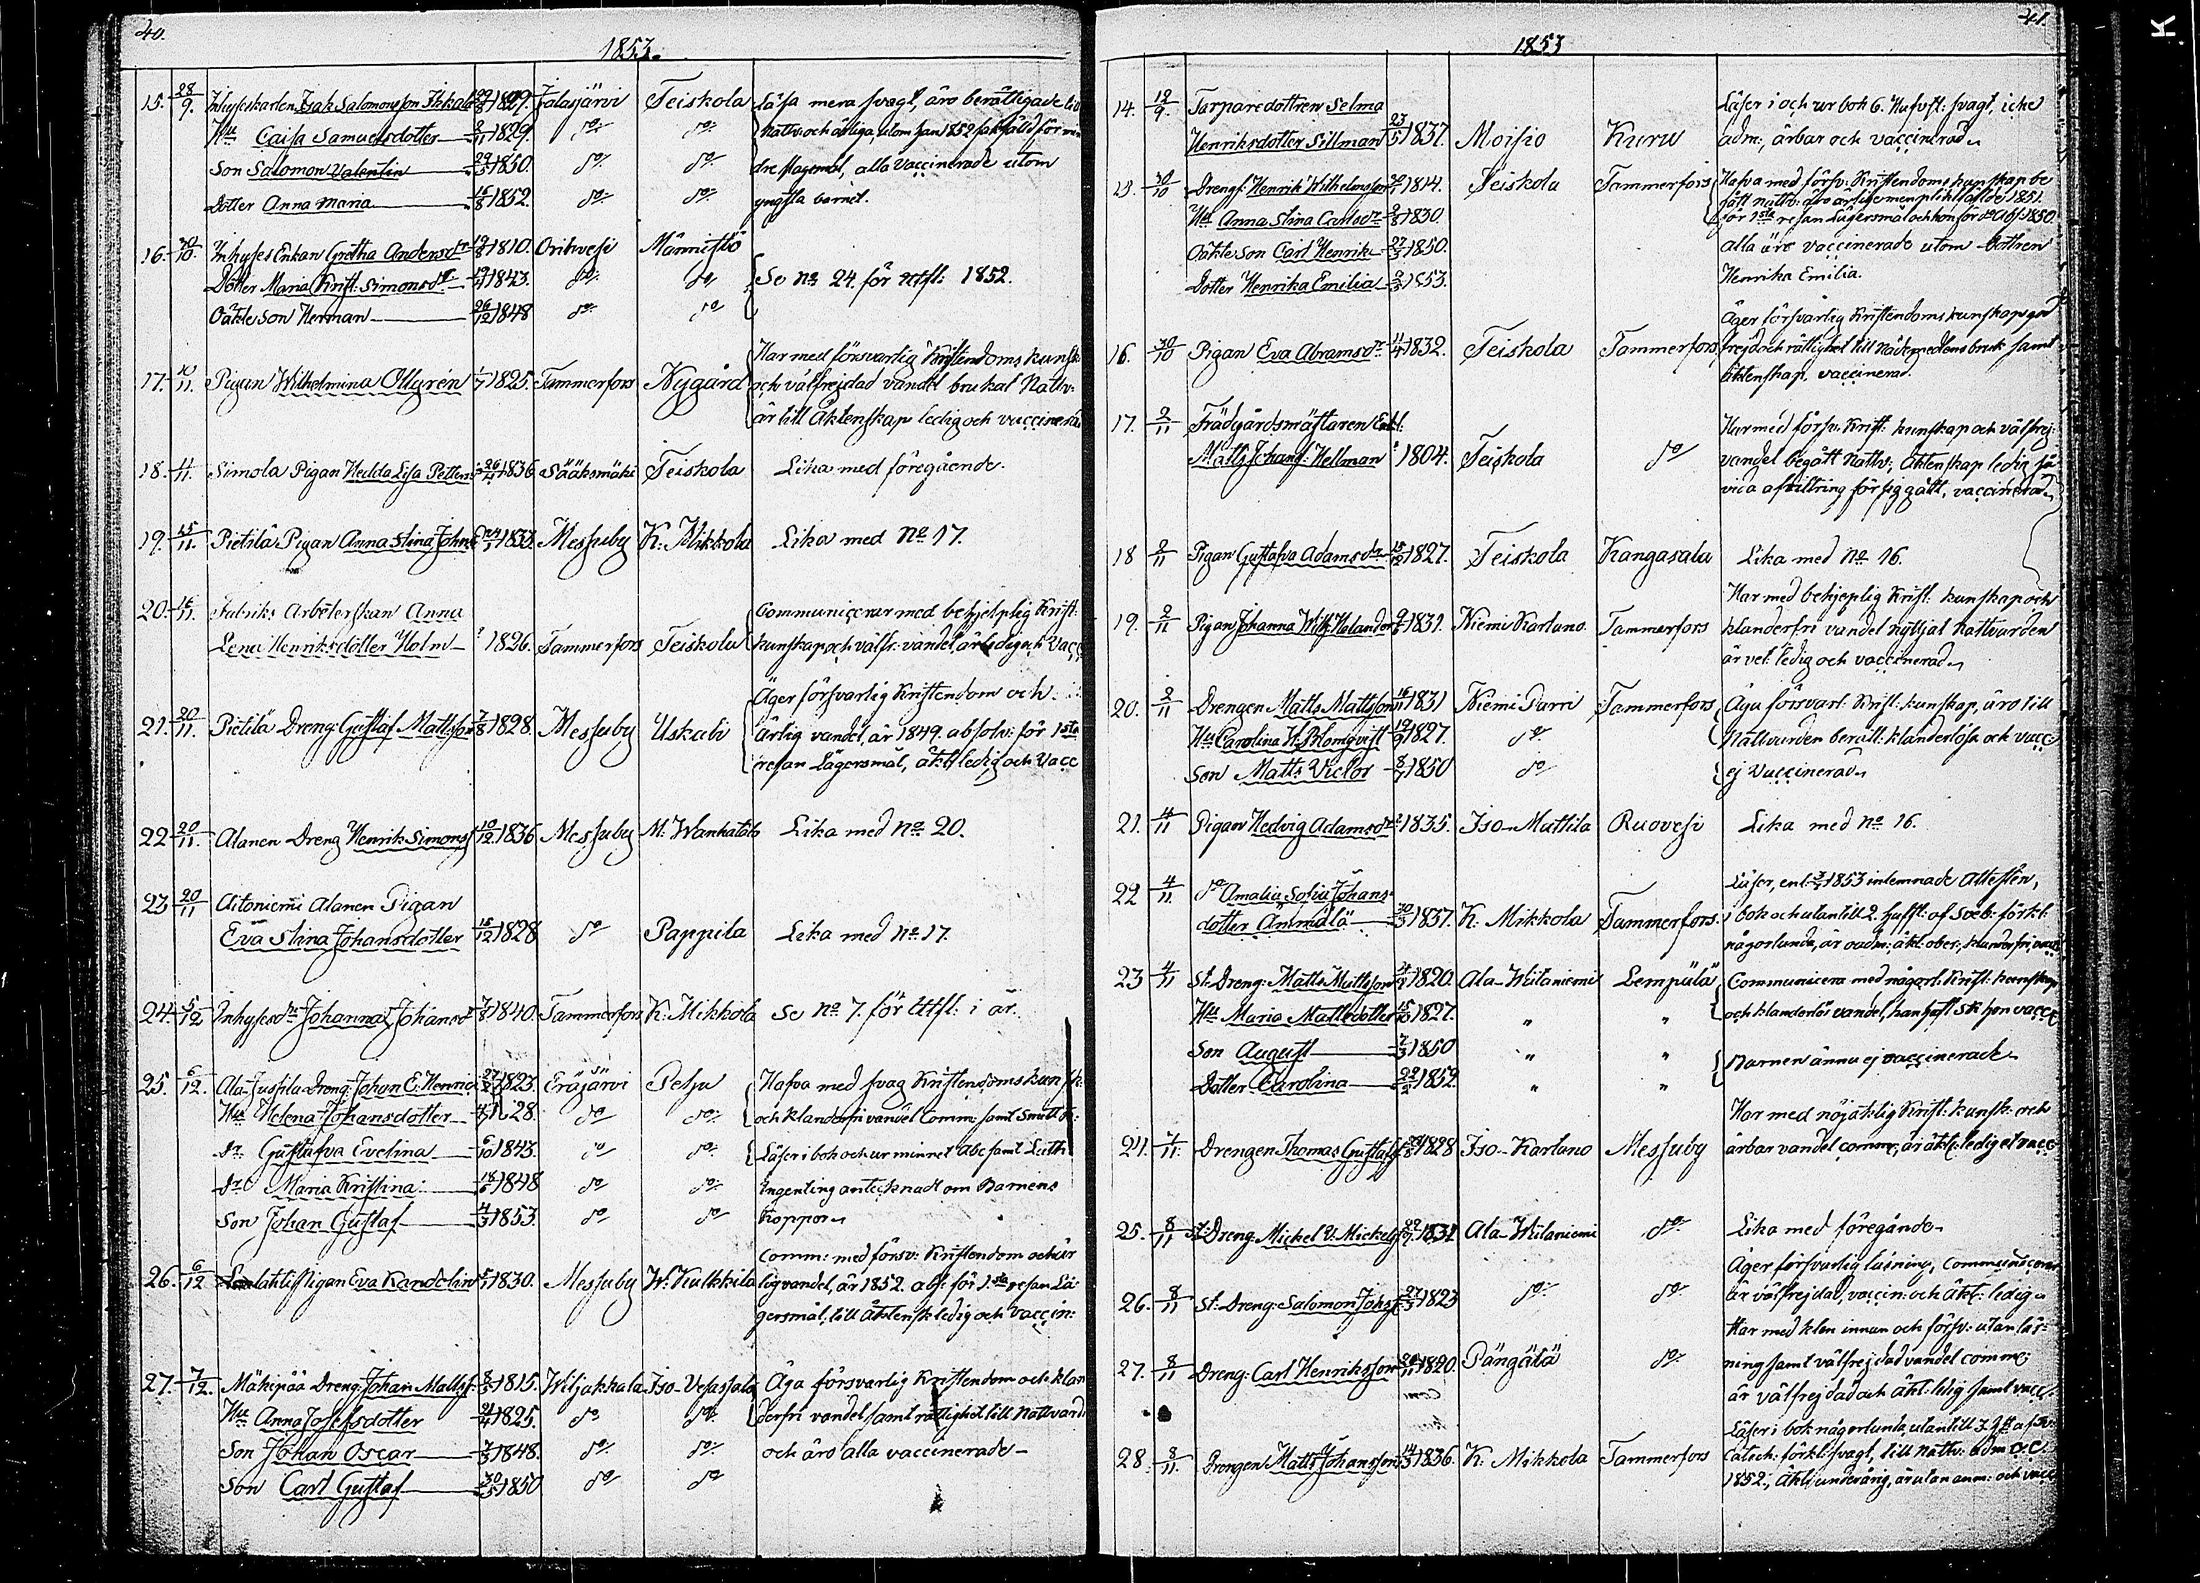 40.
1853.
15. 28/9. Inhyseskarlen Isak Salomonsson 1829. Jalasjärvi Teiskola Läsa mera svagt, äro berättigade till
Hu Caisa Samuelsdotter 1829. do do Nattv: och ärliga, utom han 1852 sakfälld för min
Son Salomon Valentin 1850. do do dre Stagsmål, alla vaccinerade utom
Dotter Anna Maria 1852. do do yngsta barnet.
16. 30/10. Inhyses Enkan Gretha Andersdr 1810. Orihvesi Männistö
Dotter Maria Krist. Simonsdr 1843. do do Se no 24. för utfl: 1852.
Oäkte Son Herman 26/12 1848 do do
Har med försvarlig Kristendoms kunsk
17. 10/11. Pigan Wilhelmina Ollgrén 1825. Tammerfors Nygård och välfrejdad vandel brukat Nattv:
är till Äktenskap ledig och vaccinerad
18. 11. Simola Pigan Hedda Lisa Petters 1836 Sääksmäki Teiskola Lika med föregående.
19. 15/11. Pietilä Pigan Anna Stina Johns 1833. Messuby K: Mikkola Lika med No 17.
20. 15/11. Fabriks Arbeterskan Anna Communicerar med behjelplig Krist:
Lena Henriksdotter Holm 1826. Tammerfors Teiskola kunskap och välfr: vandel, är ledig och Vacc
Äger försvarlig Kristendom och
21. 20/11. Pietilä Dreng: Gustaf Mattsson 7/8 1828. Messuby Uskali ärlig vandel, är 1849. absolv: för 1sta
resan Lägersmål, äkt: ledig och Vacc
22 20/11. Alanen Dreng Henrik Simons 10/12 1836 Messuby M. Wanhatalo Lika med No 20.
23 20/11 Aitoniemi Alanen Pigan
Eva Stina Johansdotter 15/12 1828 do Pappila Lika med No 17.
24. 5/12 Inhysesdr Johanna Johansdr 1840. Tammerfors K: Mikkola Se No 7. för Utfl: i år.
25. 6/12. Ala-Jussila Dreng: Johan E: Henric 1823. Eräjärvi Pelsu Hafva med svag Kristendoms kunsk:
Hu Helena Johansdotter 1828. do do och klanderfri vandel Comm: samt
Dr Gustafva Evelina 6/10 1843. do do Läser i bok och ur minnet Abc samt Luth
dr Maria Kristina 1848 do do Ingenting antecknadt om Barnens
Son Johan Gustaf 1853. do do koppor.
Comm: med försv: Kristendom och är
26. 6/12 Pigan Eva Kandelin 1830. Messuby W: Kulkkila lig vandel, är 1852. abs. för 1sta resan Lä
gersmål, till Äktensk ledig och Vaccin:
27. 7/12. Mäkipää Dreng: Johan Mattss. 1815. Wiljakkala Iso-Vesajala Äga försvarlig Kristendom och klan
Hu Anna Josefsdotter 1825. do do derfri vandel samt rättighet till Nattvard
Son Johan Oscar 1848. do do och äro alla vaccinerade
Son Carl Gustaf 1850 do do
41.
1853
14. 19/9. Torparedottren Selma Läser i och ur bok 6. Hufvst: svagt, icke
Henriksdotter Sillman 23/5 1837. Moisio Kuru adm:, ärbar och vaccinerad
15. 30/10 Drengs: Henrik Wilhelmsson 1814. Teiskola Tammerfors Hafva med försv: Kristendoms kunskap be
gått nattv: äro ärlige men pliktfälld 1851.
Hu Anna Stina Carlsdr 1830. för 1sta resan Lägersmål och hon för do Abs: 1850.
Oäkte Son Carl Henrik 1850. alla äro vaccinerade utom dottren
Dotter Henrika Emilia 1853. Henrika Emilia.
Äger försvarlig Kristendoms kunskap god
16. 30/10 Pigan Eva Abramsdr 1832. Teiskola Tammerfors frejd och rättighet till Nådemedlens bruk samt
äktenskap, vaccinerad.
17. 2/11 Trädgårdsmästaren Har med försv: Krist: kunskap och välfrej:
Matts Johans: Hellman 1804. Teiskola do vandel begått Nattv: Äktenskap ledig
för sig gått, vaccinerad
18 2/11 Pigan Gustafva Adamsdr 1827. Teiskola Kangasala Lika med No 16.
Har med behjeplig Krist: kunskap och
19. 2/11 Pigan Johanna Wilh: Helander 1831. Niemi Karlano Tammerfors klanderfri vandel nyttjat Nattvarden
är vet: ledig och vaccinerad
20. 2/11 Drengen Matts Mattsson 1831 Niemi Parri Tammerfors Äga försvarl: Krist: kunskap, äro till
Hu Carolina H. Blomqvist 1827. do Nattvarden berätt: klanderlösa och vacc
Son Matts Victor 1850 do ej Vaccinerad
21. 4/11 Pigan Hedvig Adamsdr 1835. Iso-Mattila Ruovesi Lika med No 16.
22 4/11. do Amalia Sofia Johans Läser, enl: 1853 inlemnade Attesten,
dotter Ammälä 1837. K. Mikkola Tammerfors. i bok och utantill 2. hufst: af Sveb: förkl:
någorlunda, är oadm: äkt: ober:, klanderfri,
23 4/11 St: Dreng: Matts Mattsson 1820. Ala-Wälaniemi Lempälä Communicera med någorl: Krist: kunskap
Hu Maria Mattsdotter 1827. " " och klanderlös vandel,
Son August 1850 " " Barnen ännu ej vaccinerade
Dotter Carolina 1852 " "
Har med nöjaktig Krist: kunsk: och
24. 7/11. Drengen Thomas Gustafs 1828 Iso-Karlano Messuby ärbar vandel comm:, är äkt: ledig et vacc
25. 8/11 St: Dreng: Mickel V: Mickels 1831 Ala-Wälaniemi do Lika med föregånde
Äger försvarlig läsning, Communicerar
26. 8/11 St: Dreng: Salomon Johss: 1823 do do är välfrejdad, vaccin: och äkt: ledig
Har med klen innan och försv: utan läs:
27. 8/11 Dreng: Carl Henriksson 1820. Pängälä do ning samt välfrejdad vandel comm:
är välfrejdad och äkt: ledig samt vacc:
Läser i bok någorlunda, utantill
28. 8/11. Drengen Matts Johansson 1836. K: Mikkola Tammerfors Catech: förkl: svagt, till Nattv: adm
1852., Äkt: underårig, är utan anm: och vacc
K